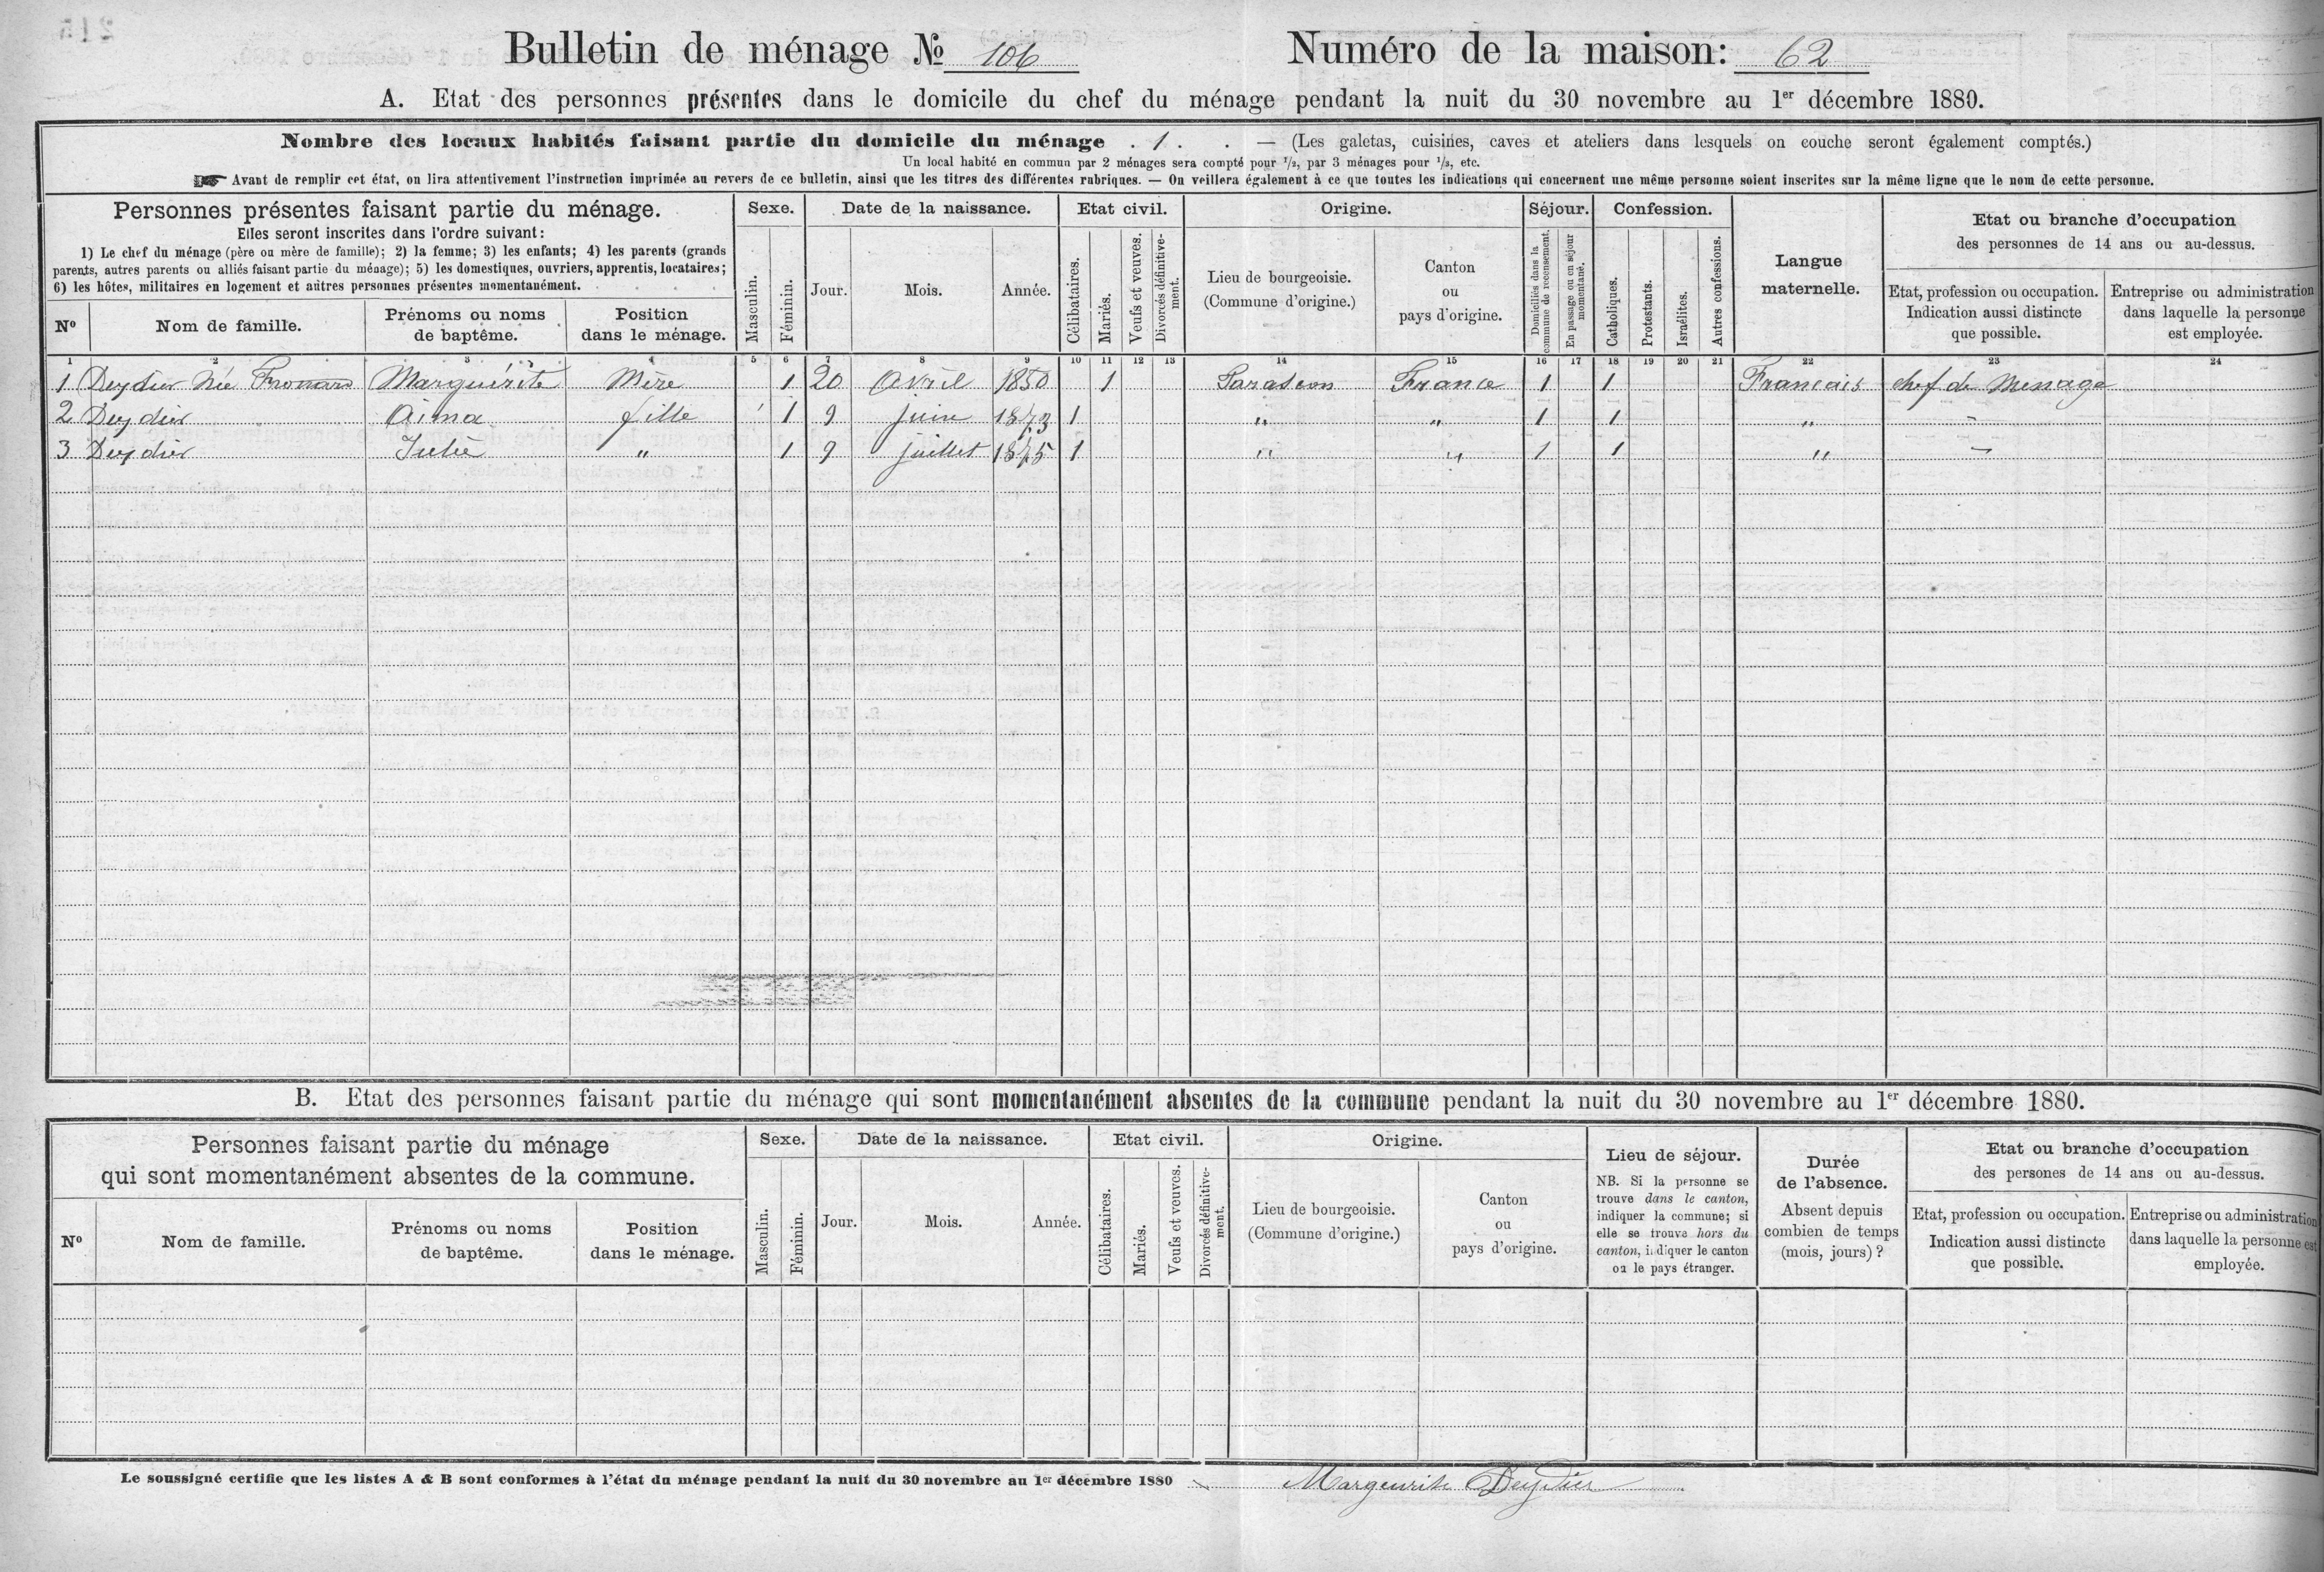 Bulletin de ménage № 106
Numéro de la maison: 62
A. Etat des personnes présentes dans le domicile du chef du ménage pendant la nuit du 30 novembre au 1er décembre 1880.
Nombre des locaux habités faisant partie du domicile du ménage . 1 . . — (Les galetas, cuisines, caves et ateliers dans lesquels on couche seront également comptés.)
Un local habité en commun par 2 ménages sera compté pour 1/2, par 3 ménages pour 1/3, etc.
☞ Avant de remplir cet état, on lira attentivement l'instruction imprimée au revers de ce bulletin, ainsi que les titres des différentes rubriques. — On veillera également à ce que toutes les indications qui concernent une même personne soient inscrites sur la même ligne que le nom de cette personne.
Personnes présentes faisant partie du ménage.
Elles seront inscrites dans l'ordre suivant:
1) Le chef du ménage (père ou mère de famille); 2) la femme; 3) les enfants; 4) les parents (grands
parents, autres parents ou alliés faisant partie du ménage); 5) les domestiques, ouvriers, apprentis, locataires;
6) les hôtes, militaires en logement et autres personnes présentes momentanément.
No
Nom de famille.
Prénoms ou noms
de baptême.
Position
dans le ménage.
Sexe.
Masculin.
Féminin.
Date de la naissance.
Jour.
Mois.
Année.
Etat civil.
Célibataires.
Mariés.
Veufs et veuves.
Divorcés définitive-
ment.
Origine.
Lieu de bourgeoisie.
(Commune d'origine.)
Canton
ou
pays d'origine.
Séjour.
Domiciliés dans la
commune de recensement.
En passage ou en séjour
momentané.
Confession.
Catholiques.
Protestants.
Israélites.
Autres confessions.
Langue
maternelle.
Etat ou branche d'occupation
des personnes de 14 ans ou au-dessus.
Etat, profession ou occupation.
Indication aussi distincte
que possible.
Entreprise ou administration
dans laquelle la personne
est employée.
1 2 3 4 5 6 7 8 9 10 11 12 13 14 15 16 17 18 19 20 21 22 23 24
1 Deydier Née Marguérite Mère 1 20 Avril 1850 1 Tarascon France 1 1 Francais chef de Menage
2 Deydier Aima fille 1 9 juin 1873 1 " " 1 1 " -
3 Deydier Julie " 1 9 juillet 1875 1 " " 1 1 " -
B. Etat des personnes faisant partie du ménage qui sont momentanément absentes de la commune pendant la nuit du 30 novembre au 1er décembre 1880.
Personnes faisant partie du ménage
qui sont momentanément absentes de la commune.
No
Nom de famille.
Prénoms ou noms
de baptême.
Position
dans le ménage.
Sexe.
Masculin.
Féminin.
Date de la naissance.
Jour.
Mois.
Année.
Etat civil.
Célibataires.
Mariés.
Veufs et veuves.
Divorcés définitive-
ment.
Origine.
Lieu de bourgeoisie.
(Commune d'origine.)
Canton
ou
pays d'origine.
Lieu de séjour.
NB. Si la personne se
trouve dans le canton,
indiquer la commune; si
elle se trouve hors du
canton, indiquer le canton
ou le pays étranger.
Durée
de l'absence.
Absent depuis
combien de temps
(mois, jours) ?
Etat ou branche d'occupation
des persones de 14 ans ou au-dessus.
Etat, profession ou occupation.
Indication aussi distincte
que possible.
Entreprise ou administration
dans laquelle la personne est
employée.
Le soussigné certifie que les listes A & B sont conformes à l'état du ménage pendant la nuit du 30 novembre au 1er décembre 1880 Margeurite Deydier